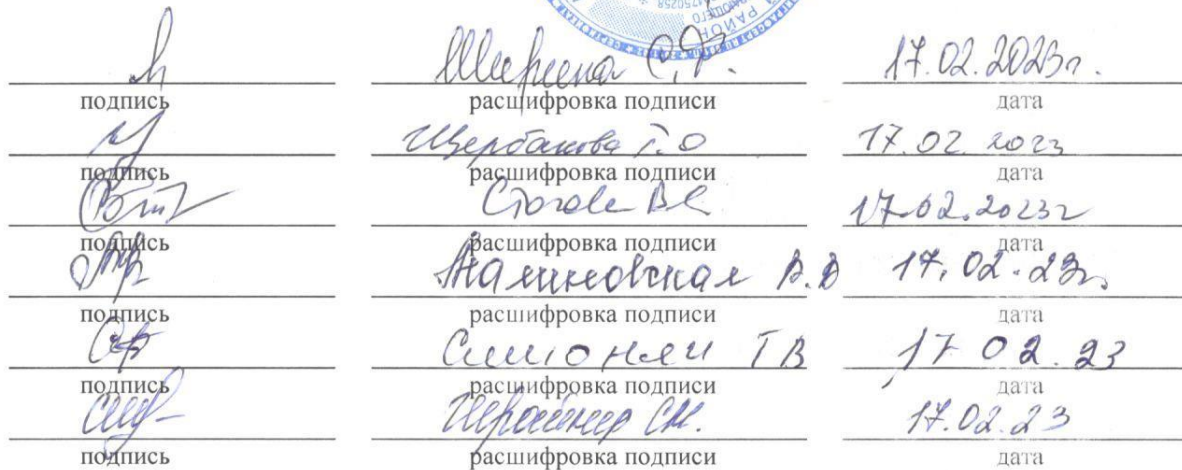 РАЙОН
17.02.2023г.
подпись расшифровка подписи дата
Щербакова Т.О 17.02.2023
подпись расшифровка подписи дата
17.02.2023г
подпись расшифровка подписи дата
Малиновская В.В 17.02.23г.
подпись расшифровка подписи дата
Симонян ТВ 17 02.23
подпись расшифровка подписи дата
17.02.23
подпись расшифровка подписи дата